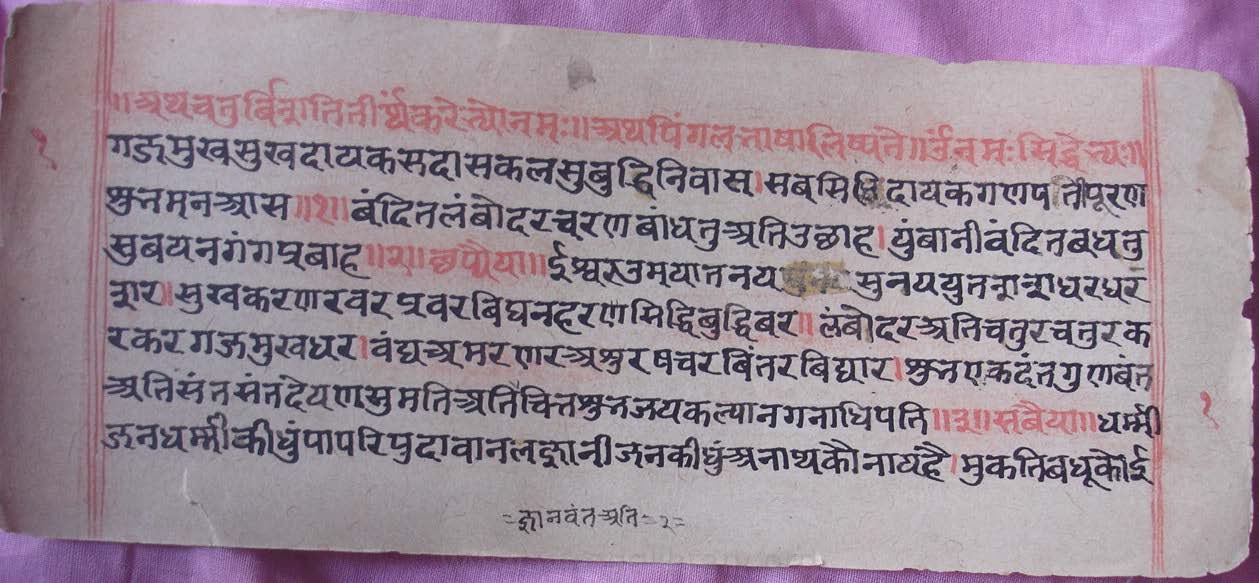 ॥अथचतुर्बिंशतितीर्थंकरेभ्योनमः॥अथपिंगलभाषालिष्यते॥ॐनमःसिद्धेभ्यः॥
१
गजमुखसुखदायकसदासकलसुबुद्धिनिवास।सबसिद्धिदायकगणपतीपूरण
शुभमनआस॥१॥बंदितलंबोदरचरणबाधतुअतिउछाह।युंबानीवंदितबधतु
सुबयनगंगप्रबाह॥२॥छप्पैया॥ईश्वरउमयातनय सुनययुत
सुखकरणरवरप्रवरबिघनहरणसिद्धिबुद्धिबर॥लंबोदरअतिचतुरचतुरक
रकरगजमुखधर।वंद्यअमरणरअशुरषचरबिंतरबिद्यार।शुभएकदंतगुणबंत
अतिसंतसंतदेयणसुमतिअतिचितशुभजयकल्यानगनाधिपति॥३॥सबैया॥धर्म्मी
जनधर्म्मकीधुंपापरिपुदावानलज्ञानीजनकीधुंअनाथकौनाथहै।मुकतिबधूकोई
१
=ज्ञानवंतअति=२=